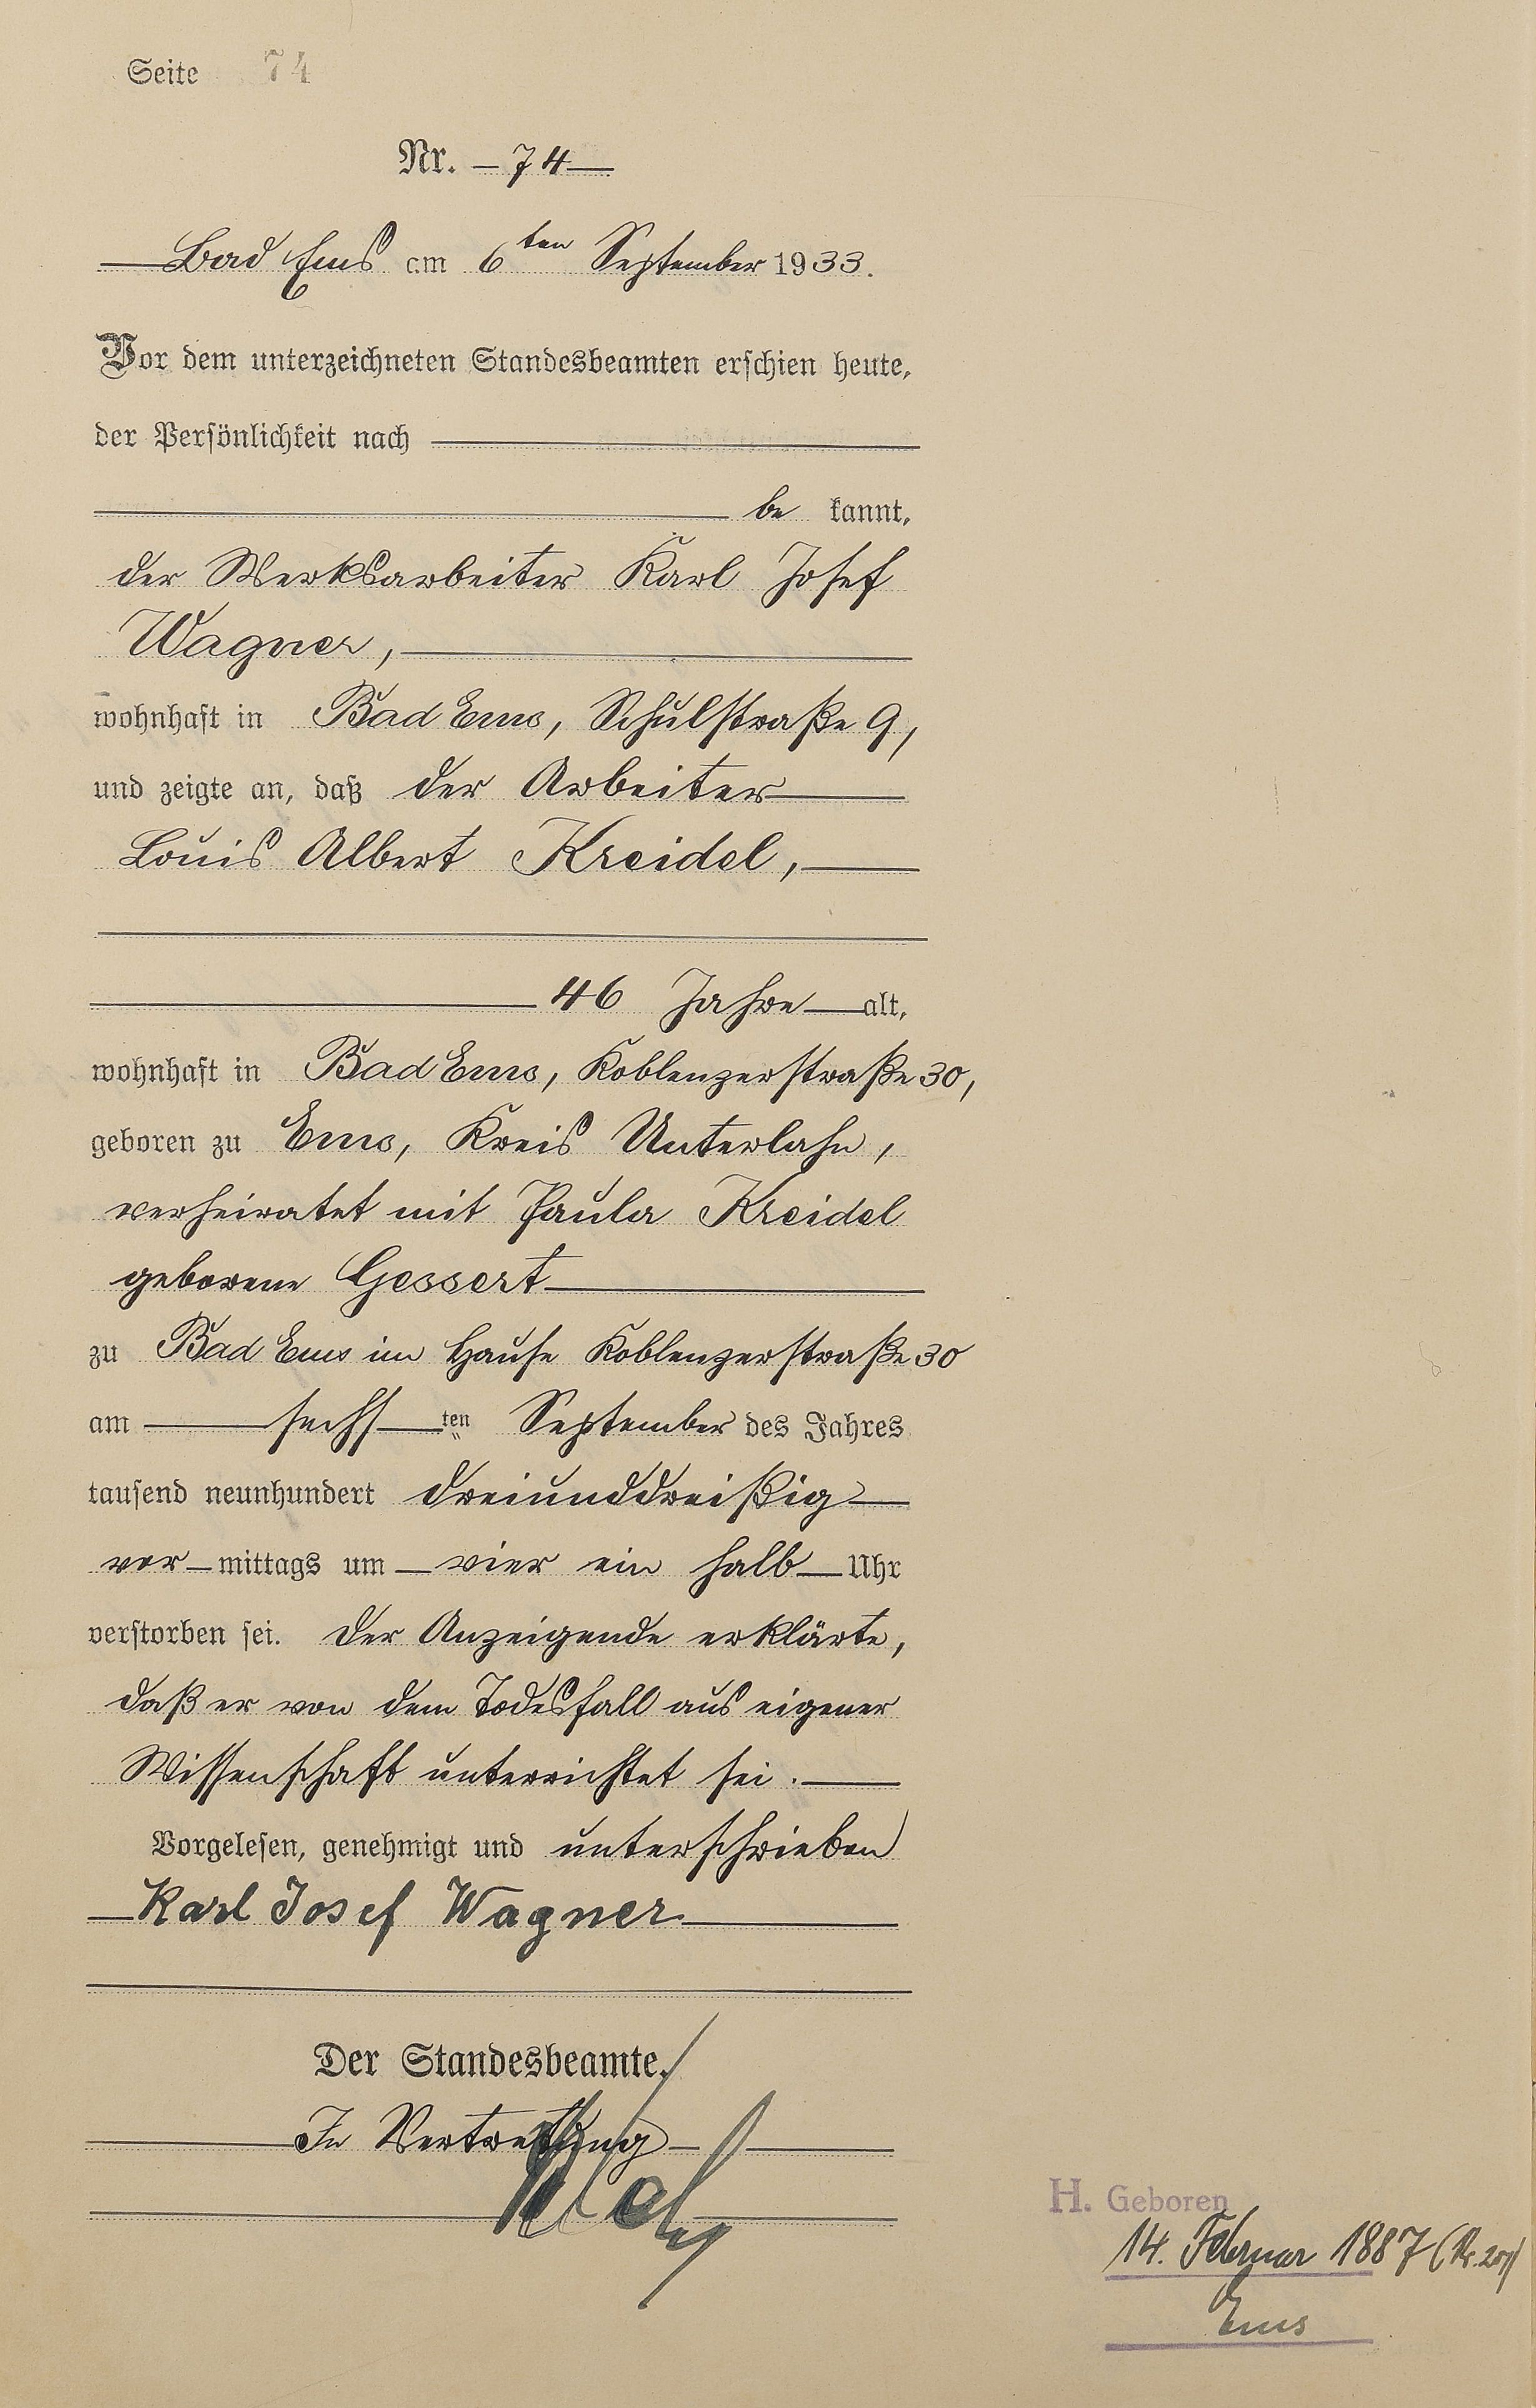 Seite 74
Nr. 74
Bad Ems am 6ten September 1933.
Vor dem unterzeichneten Standesbeamten erschien heute,
der Persönlichkeit nach
be kannt,
der Werksarbeiter Karl Josef
Wagner,
wohnhaft in Bad Ems, Schulstraße 9,
und zeigte an, daß der Arbeiter
Louis Albert Kreidel,
46 Jahre alt,
wohnhaft in Bad Ems, Koblenzerstraße 30,
geboren zu Ems, Kreis Unterlahn,
verheiratet mit Paula Kreidel
geborene Gessert
zu Bad Ems im Hause Koblenzerstraße 30
am sechsten September des Jahres
tausend neunhundert dreiunddreißig
vor-mittags um vier ein halb Uhr
verstorben sei. Der Anzeigende erklärte,
daß er von dem Todesfall aus eigener
Wissenschaft unterrichtet sei.
Vorgelesen, genehmigt und unterschrieben
Karl Josef Wagner
Der Standesbeamte.
In Vertretung
H. Geboren
14. Februar 1887
Ems